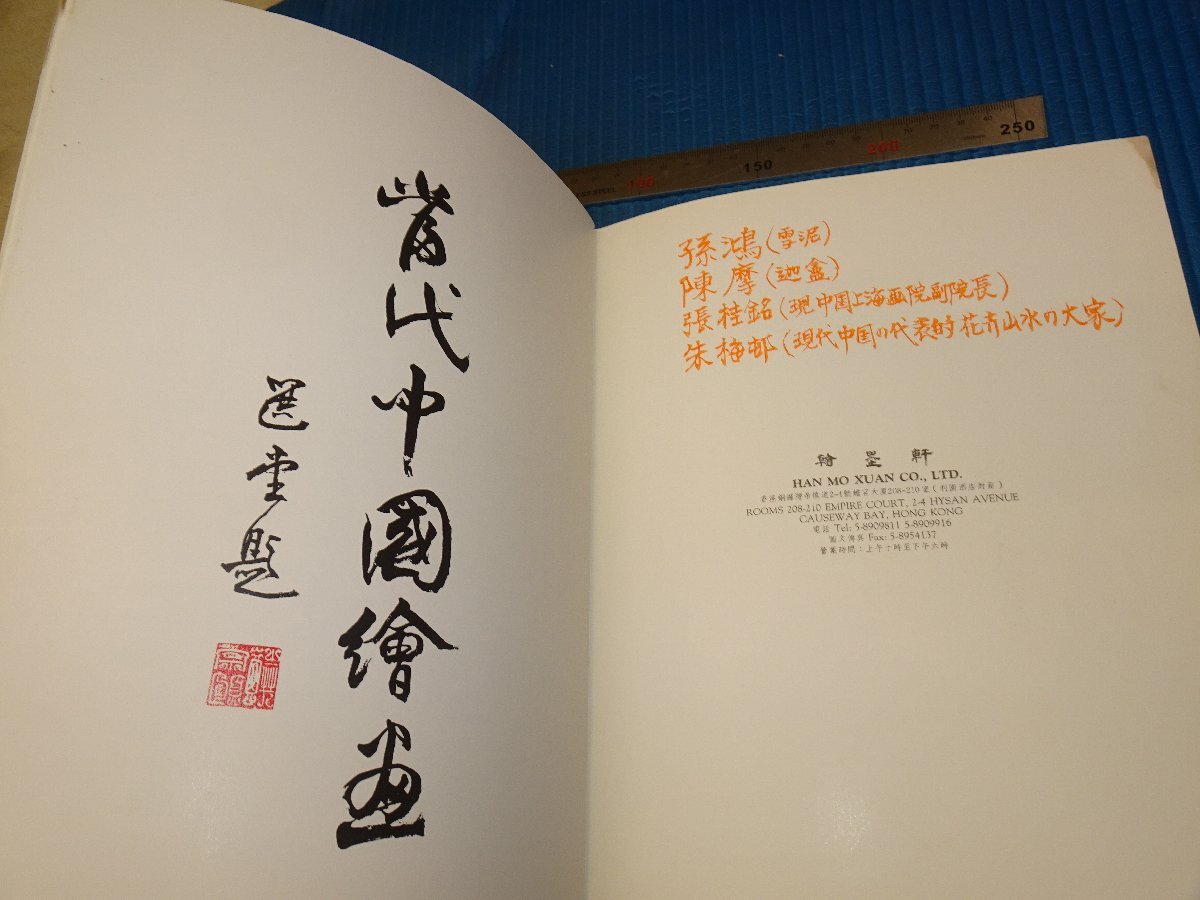 當代中國繪畫
選堂題
孫鴻(雪泥)
陳摩(迦盦)
張桂銘(現中国上海画院副院長)
朱梅邨(現代中国の代表的花卉山水の大家)
翰墨軒
HAN MO XUAN CO., LTD.
香港銅鑼灣希慎道2-4號蟾宮大廈208-210室(利園酒店附近)
ROOMS 208-210 EMPIRE COURT, 2-4 HYSAN AVENUE
CAUSEWAY BAY, HONG KONG
電話 Tel: 5-8909811 5-8909916
圖文傳真 Fax: 5-8954137
營業時間:上午十時至下午六時
100
150
200
250